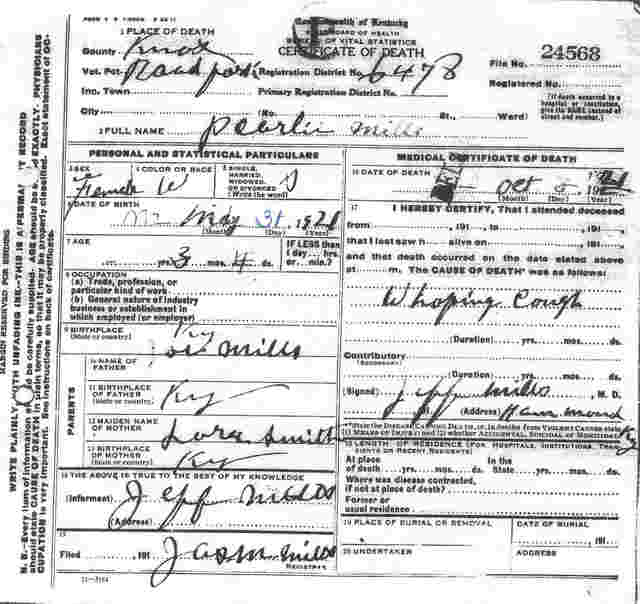 Commonwealth of Kentucky
STATE BOARD OF HEALTH
BUREAU OF VITAL STATISTICS
CERTIFICATE OF DEATH
1 PLACE OF DEATH
County Knox
Vot. Pct. Registration District No. 6478
File No. 24568
Inc. Town Primary Registration District No.
Registered No.
City (No. St., Ward)
(If death occurred in a hospital or institution, give its NAME instead of street and number.)
2 FULL NAME Pearlie Mills
PERSONAL AND STATISTICAL PARTICULARS
3 SEX Female
4 COLOR OR RACE W
5 SINGLE, MARRIED, WIDOWED, OR DIVORCED (Write the word) S
6 DATE OF BIRTH May 31
(Month) (Day) (Year)
7 AGE
yrs. 3 mos. 4 ds.
IF LESS than 1 day, hrs. or min.?
8 OCCUPATION
(a) Trade, profession, or particular kind of work
(b) General nature of industry business or establishment in which employed (or employer)
9 BIRTHPLACE (State or country) Ky
PARENTS
10 NAME OF FATHER Mills
11 BIRTHPLACE OF FATHER (State or country) Ky
12 MAIDEN NAME OF MOTHER Smith
13 BIRTHPLACE OF MOTHER (State or country) Ky
14 THE ABOVE IS TRUE TO THE BEST OF MY KNOWLEDGE
(Informant) Jeff Mills
(Address)
15
Filed 191 Jas M Mills
REGISTRAR
MEDICAL CERTIFICATE OF DEATH
16 DATE OF DEATH Oct
(Month) (Day) (Year)
17 I HEREBY CERTIFY, That I attended deceased
from 191 , to 191
that I last saw h alive on 191
and that death occurred on the date stated above
at m. The CAUSE OF DEATH* was as follows:
Whoping Cough
(Duration) yrs. mos. ds.
Contributory
(SECONDARY)
(Duration) yrs. mos. ds.
(Signed) Jeff Mills M. D.
191 (Address) Hammond
Ky
*State the DISEASE CAUSING DEATH, or, in deaths from VIOLENT CAUSES state (1) MEANS OF INJURY; and (2) whether ACCIDENTAL, SUICIDAL or HOMICIDAL.
18 LENGTH OF RESIDENCE (FOR HOSPITALS, INSTITUTIONS, TRANSIENTS OR RECENT RESIDENTS)
At place of death yrs. mos. ds. In the State yrs. mos. ds.
Where was disease contracted, if not at place of death?
Former or usual residence
19 PLACE OF BURIAL OR REMOVAL
DATE OF BURIAL
191
20 UNDERTAKER
ADDRESS
MARGIN RESERVED FOR BINDING
WRITE PLAINLY, WITH UNFADING INK—THIS IS A PERMANENT RECORD
N. B.—Every item of information should be carefully supplied. AGE should be stated EXACTLY. PHYSICIANS
should state CAUSE OF DEATH in plain terms, so that it may be properly classified. Exact statement of OC-
CUPATION is very important. See instructions on back of certificate.